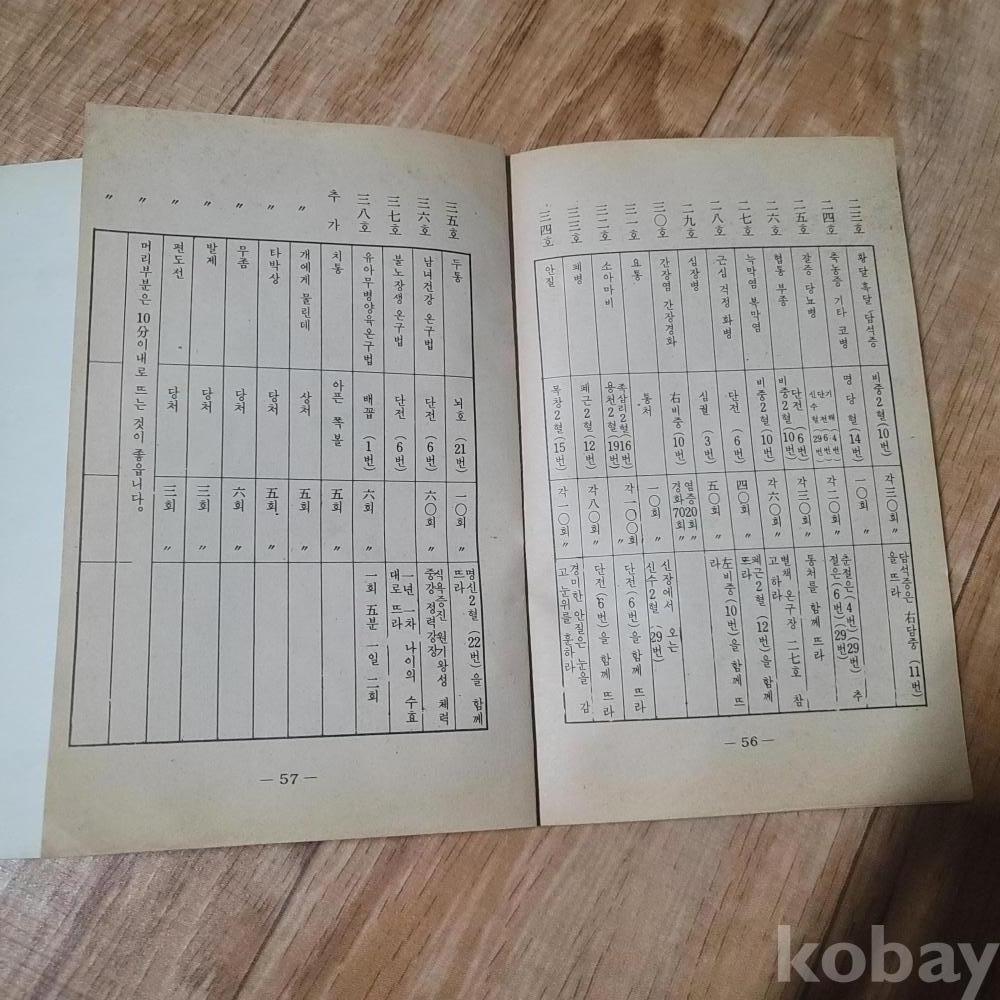 二三호 황달 흑달 담석증 비중2혈(10번) 각三〇회 담석증은 右담중(11번)
을 뜨라
二四호 축농증 기타 코병 명당혈(14번) 一〇〃
二五호 갈증 당뇨병 기해(4번) 단전(6번) 신수혈(29번) 각二〇회 춘절은(4번)(29번) 추
절은(6번)(29번)
二六호 협통 부종 단전(6번) 비중2혈(10번) 각三〇회〃 통처를 함께 뜨라
二七호 늑막염 복막염 비중2혈(10번) 각六〇회〃 별책 온구장 二七호 참
고 하라
二八호 근심 걱정 화병 단전(6번) 四〇회〃 폐근2혈(12번)을 함께
뜨라
二九호 심장병 심궐(3번) 五〇회〃 左비중(10번)을 함께 뜨
라
三〇호 간장염 간장경화 右비중(10번) 염증20회 경화70회〃
三一호 요통 통처 一〇회〃 신장에서 오는
신수2혈(29번)
三二호 소아마비 족삼리2혈(16번) 용천2혈(19번) 각一〇〇회〃 단전(6번)을 함께 뜨라
三三호 폐병 폐근2혈(12번) 각八〇회〃 단전(6번)을 함께 뜨라
三四호 안질 목창2혈(15번) 각一〇회〃 경미한 안질은 눈을 감
고 눈위를 훈하라
— 56 —
三五호 두통 뇌호(21번) 一〇회〃 명신2혈(22번)을 함께
뜨라
三六호 남녀건강 온구법 단전(6번) 六〇회〃 식욕증진 원기왕성 체력
중강 정력강장
三七호 불노장생 온구법 단전(6번) 一년 一차 나이의 수효
대로 뜨라
三八호 유아무병양육온구법 배꼽(1번) 六회 一회 五분 一일 二회
추가 치통 아픈 쪽볼 五회〃
〃 개에게 물린데 상처 五회〃
〃 타박상 당처 五회〃
〃 무좀 당처 六회〃
〃 발제 당처 三회〃
〃 편도선 당처 三회〃
〃 머리부분은 10分이내로 뜨는 것이 좋읍니다。
〃
— 57 —
kobay